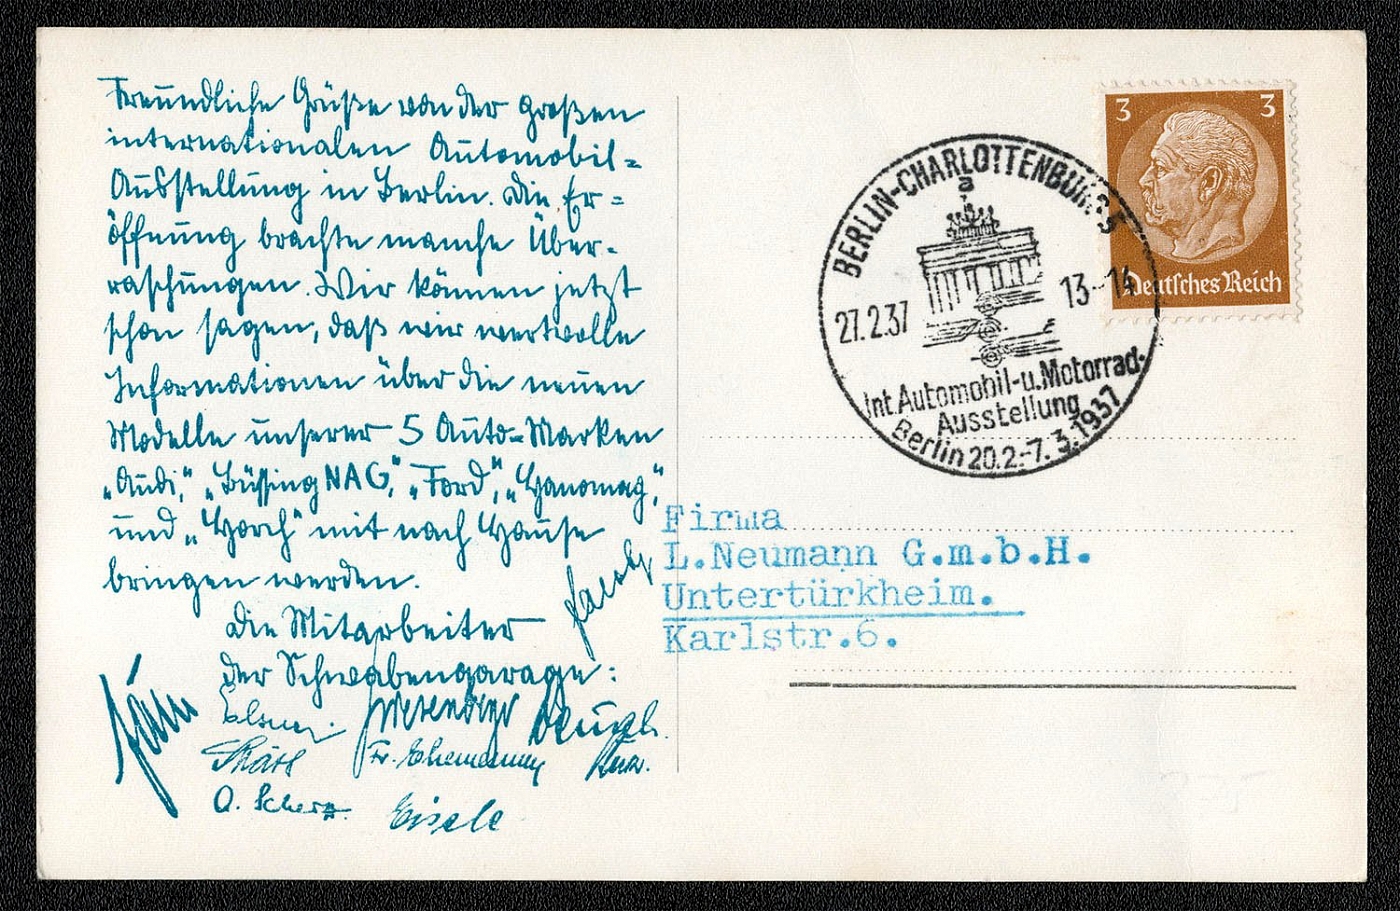 Freundliche Grüße von der großen
internationalen Automobil=
Ausstellung in Berlin. Die Er=
öffnung brachte manche Über=
raschungen. Wir können jetzt
schon sagen, daß wir wertvolle
Informationen über die neuen
Modelle unserer 5 Auto-Marken
„Audi“, „Büssing NAG“, „Ford“, „Hanomag“,
und „Horch“ mit nach Hause
bringen werden.
Die Mitarbeiter
der Schwabengarage:
O. Scherz.
Eisele
3 3
Deutsches Reich
BERLIN-CHARLOTTENBURG 5
a
27.2.37 13-14
Int. Automobil-u. Motorrad-
Ausstellung
Berlin 20.2.-7.3.1937
Firma
L.Neumann G.m.b.H.
Untertürkheim.
Karlstr.6.